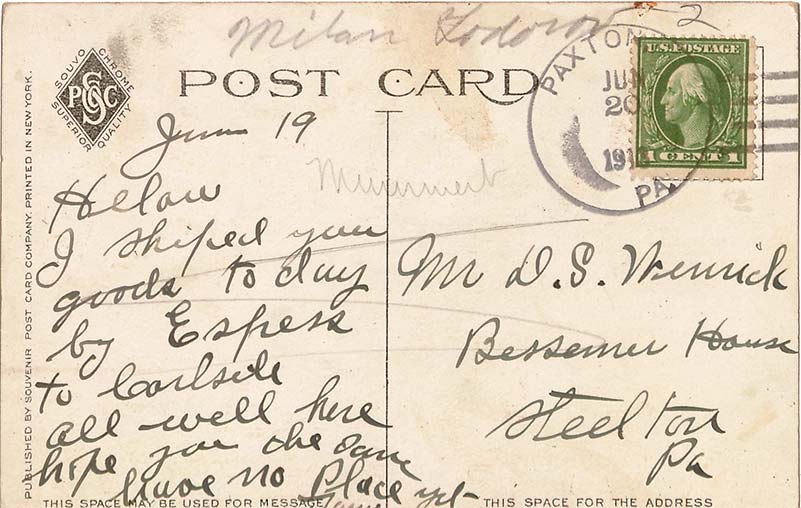 Milan Todorov
2
SOUVO CHROME
PSGC
SUPERIOR QUALITY
POST CARD
PAXTON
JUN
20
PA.
U.S. POSTAGE
1 CENT 1
June 19
Helow
I shiped your
goods to day
by Espress
to Carlsile
all well here
hope you the same
have no Place yet
Mr D. S. Wenrick
Bessemer House
Steelton
Pa
PUBLISHED BY SOUVENIR POST CARD COMPANY. PRINTED IN NEW YORK.
THIS SPACE MAY BE USED FOR MESSAGE
THIS SPACE FOR THE ADDRESS